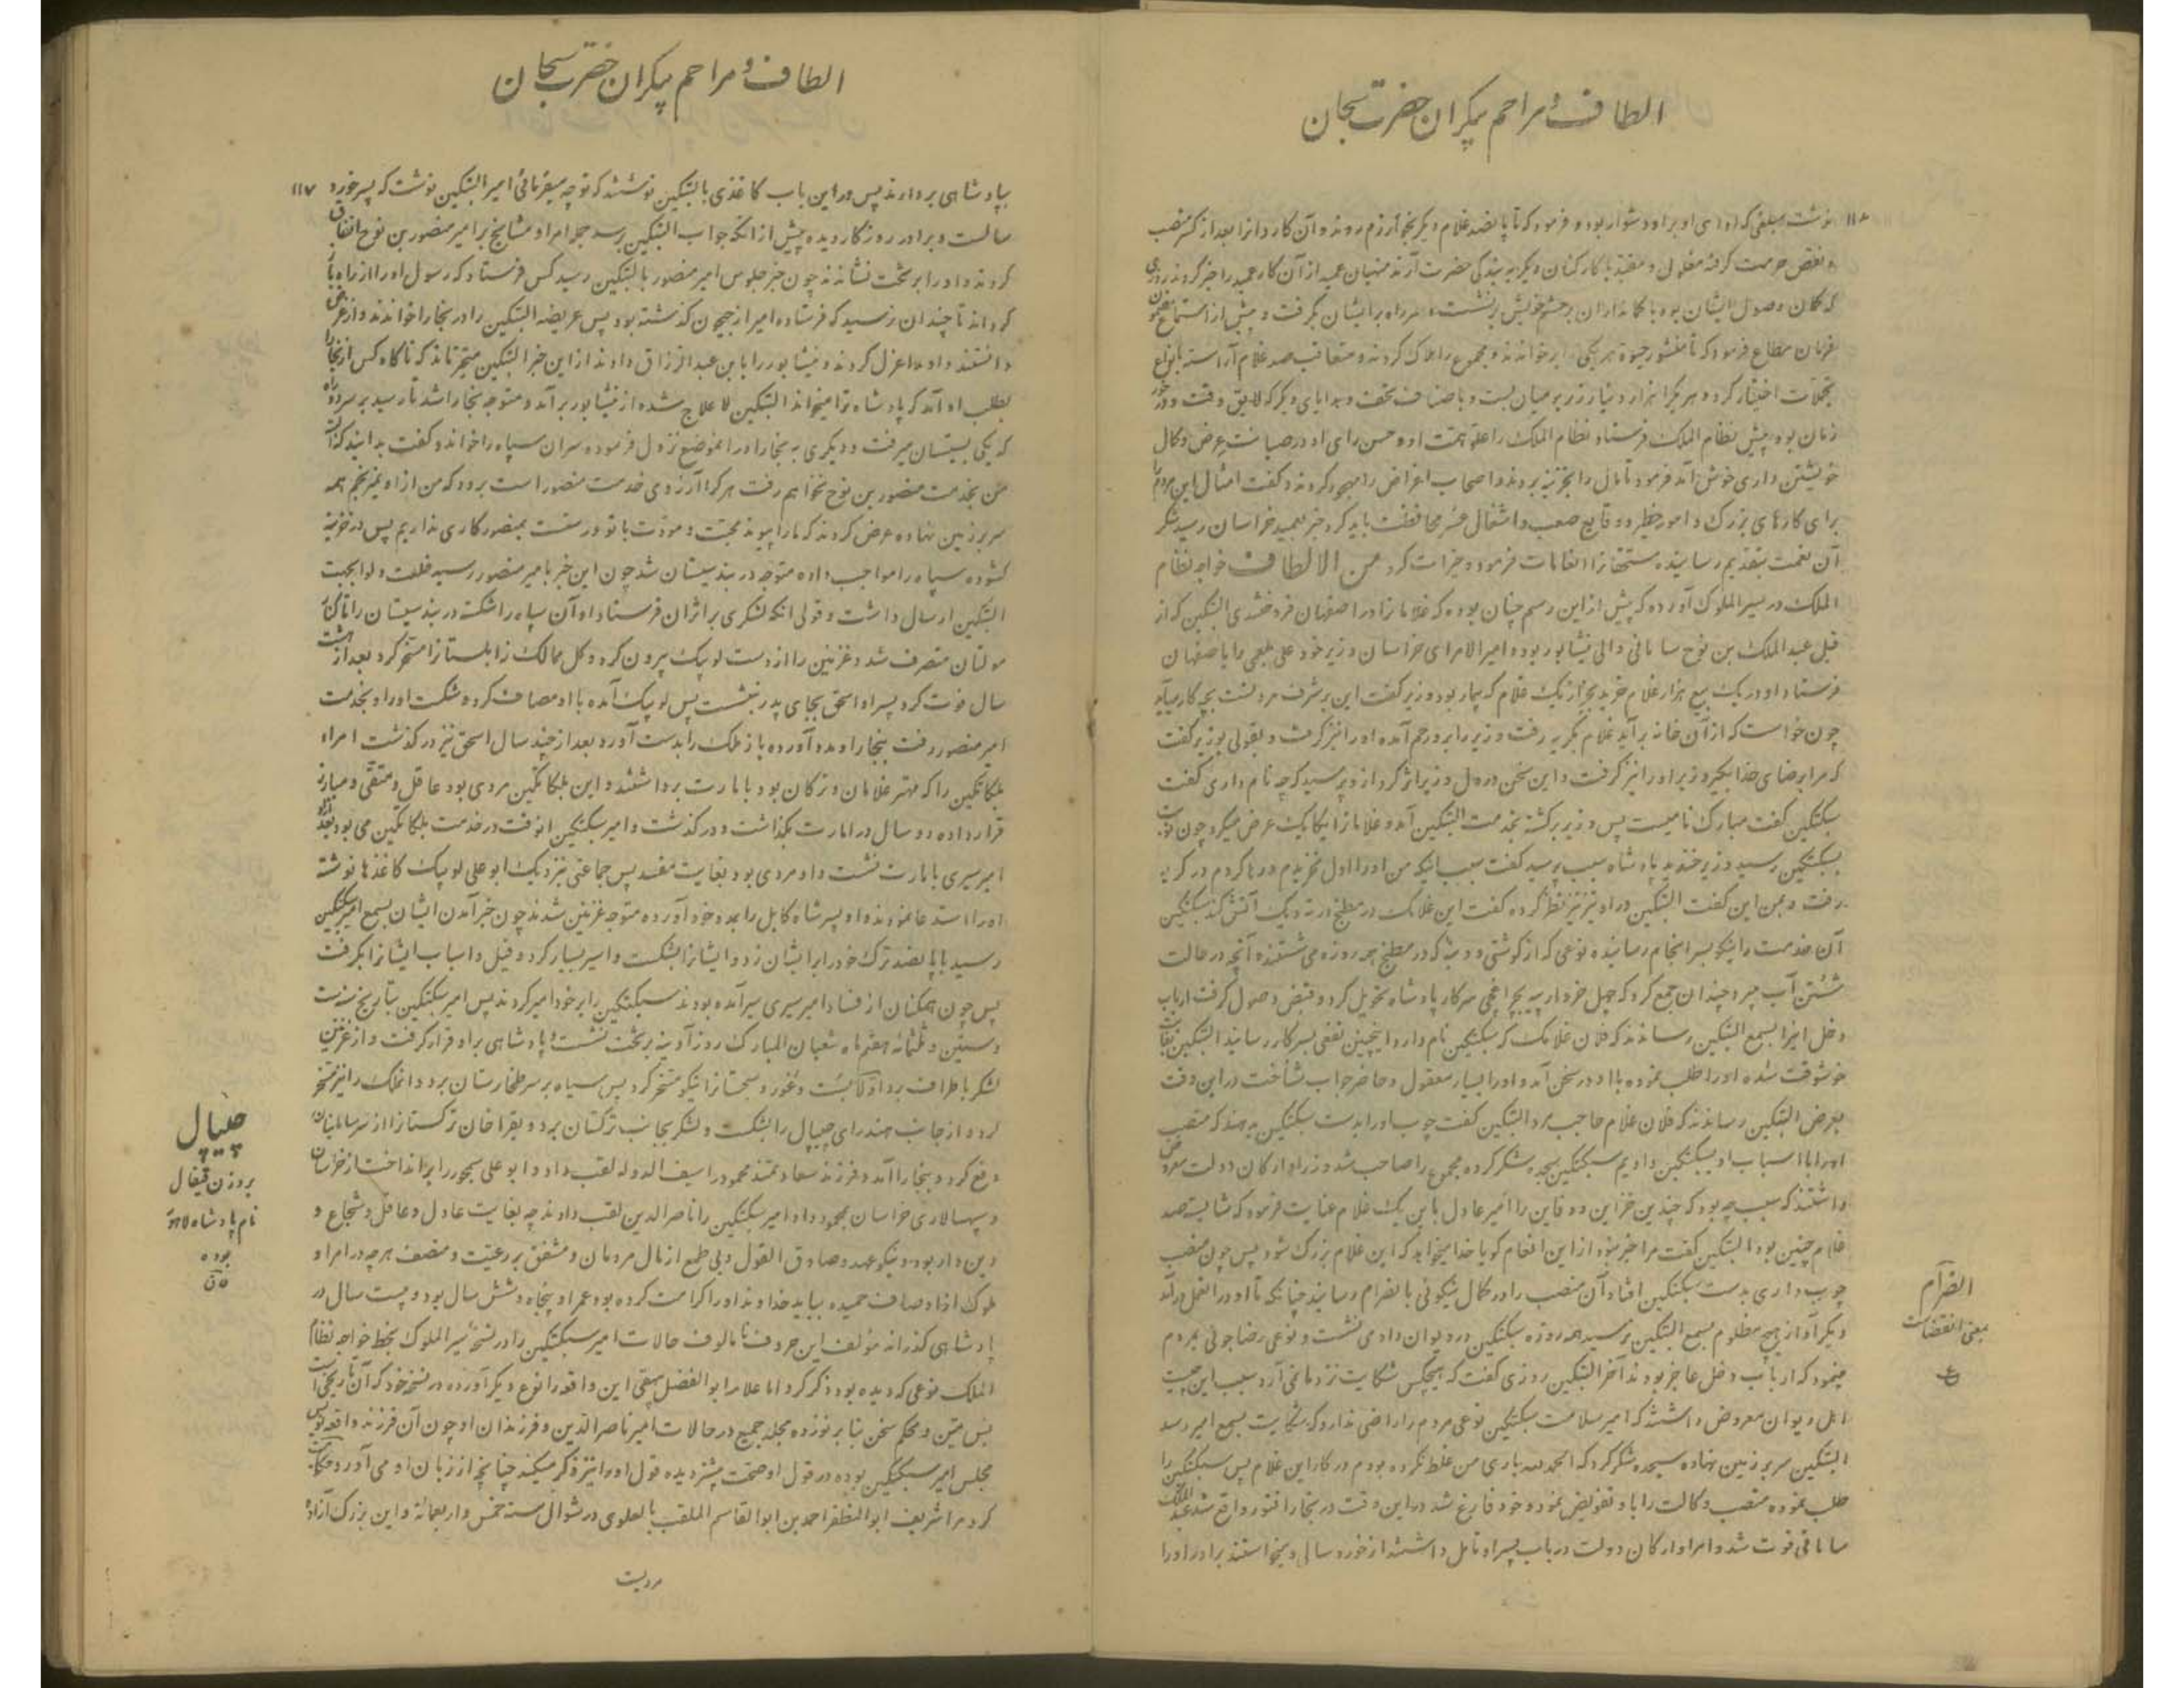 الطاف و مراحم بیکران حضرت سبحان
۱۱۶
نوشت مبلغی که ادای او برا و دشوار بود و فرمود که تا پانصد غلام دیگر بخوارزم روند و آن کاردانرا بعد از کسر منصب
و نقض حرمت گرفته مغلول و مقید با کارکنان دیگر به بندگی حضرت آرند منهیان عمید از آن کار عمید را خبر کردند روزی
که گمان وصول ایشان بود با کمانداران برنشست و سر راه برایشان بگرفت و پیش از استماع مضمون
فرمان مطاع فرمود که تا منشور حیوة هر یکی برخواندند و مجموع را هلاک کردند و متعاقب صد غلام آراسته بانواع
تجملات اختیار کرد و هر یکرا هزار دینار زر بر میان بست و با صناف تحف و هدایای دیگر که لایق وقت و درخور
زمان بود پیش نظام الملک فرستاد نظام الملک را علو همت او و حسن رای او در صیانت عرض و کمال
خویشتن داری خوش آمد فرمود تا مال را بخزینه بردند و اصحاب اغراض را مهجور کردند و گفت امثال این مردم را
برای کارهای بزرگ و امور خطیر و وقایع صعب و اشغال محافظت باید کرد خبر بعمید خراسان رسید شکر
آن نعمت بتقدیم رسانیده مستحقانرا انعامات فرمود و خیرات کرد من الالطاف خواجه نظام
الملک در سیر الملوک آورده که پیش از این رسم چنان بوده که غلامانرا در اصفهان فروختندی البتکین که از
قبل عبد الملک بن نوح سامانی والی نیشابور بود و امیر الامرای خراسان وزیر خود علی بلعمی را باصفهان
فرستاد او در یک بیع هزار غلام خرید بجز از یک غلام که بیمار بود وزیر گفت این بر شرف مردنست بچه کار میآید
چون خواست که از آن خانه برآید غلام بگریه رفت وزیر را برو رحم آمده او را نیز گرفت و بقولی بوزیر گفت
که مرا برضای خدا بگیر وزیر او را نیز گرفت و این سخن در دل وزیر اثر کرد از و پرسید که چه نام داری گفت
سبکتکین گفت مبارک نامیست پس وزیر برگشته بخدمت البتکین آمد و غلامانرا یکایک عرض میکرد چون نوبت
بسبکتکین رسید وزیر خندید پادشاه سبب پرسید گفت سبب اینکه من او را اول نخریدم و رها کردم در گریه
رفت و بمن این گفت البتکین در او تیز تیز نظر کرده گفت این غلامک در مطبخ آتش کند سبکتکین
آن خدمت را نیکو بسرانجام رسانیده نوعی که از گوشتی و دنبه که در مطبخ هر روزه می شستند آنچه در حالت
شستن آب میبرد چندان جمع کرد که چهل خروار پیه بچراغچی سرکار پادشاه تحویل کرد و قبض وصول گرفت ارباب
دخل اینرا بسمع البتکین رساندند که فلان غلامک که سبکتکین نام دارد اینچنین نفعی بسرکار رسانید البتکین بغایت
خوشوقت شده او را طلب نموده با او در سخن آمد و او را بسیار معقول و حاضر جواب شناخت در این وقت
بعرض البتکین رساندند که فلان غلام حاجب مرد البتکین گفت چوب او را بدست سبکتکین بدهند که منصب
او را با اسباب او بسبکتکین دادیم سبکتکین سجده شکر کرده مجموع را صاحب شد وزرا و ارکان دولت معروض
داشتند که سبب چه بود که چندین خزاین و دفاین را امیر عادل باین یک غلام عنایت فرمود که شایسته صد
غلام چنین بود البتکین گفت مرا خبر نبود از این انعام گویا خدا میخواهد که این غلام بزرگ شود پس چون منصب
چوب داری بدست سبکتکین افتاد آن منصب را در کمال نیکوئی بانصرام رسانید چنانکه تا او در آن عمل درآمد
دیگر آواز هیچ مظلوم بسمع البتکین نرسید همه روزه سبکتکین در دیوان دادمی نشست و نوعی رضا جوئی مردم
مینمود که ارباب دخل عاجز بودند آخر البتکین روزی گفت که هیچکس شکایت نزد ما نمی آرد سبب این چیست
اهل دیوان معروض داشتند که امیر سلامت سبکتکین نوعی مردم را راضی ندارد که شکایت بسمع امیر رسد
البتکین سر بر زمین نهاده سجده شکر کرد که الحمد لله باری من غلط نکرده بودم در کار این غلام پس سبکتکین را
طلب نموده منصب وکالت را باو تفویض نمود و خود فارغ شد در این وقت در بخارا فتور واقع شد عبد الملک
سامانی فوت شد و امرا و ارکان دولت در باب پسر او تامل داشتند از خورد سالی و میخواستند برادر او را
انصرام
بمعنی انقضاست
الطاف و مراحم بیکران حضرت سبحان
۱۱۷
بپادشاهی بردارند پس در این باب کاغذی بالبتکین نوشتند که تو چه میفرمائی امیر البتکین نوشت که پسر خورد
سالست و برادر روزگار دیده پیش از آنکه جواب البتکین برسد جمله امرا و مشایخ بر امیر منصور بن نوح اتفاق
کردند و او را بر تخت نشاندند چون خبر جلوس امیر منصور بالبتکین رسید کس فرستاد که رسول او را از راه باز
گرداند تا چندان رسید که فرستاده امیر از جیحون گذشته بود پس عریضه البتکین را در بخارا خواندند و از غرض
دانستند و او را عزل کردند و نیشابور را بابن عبد الرزاق دادند از این خبر البتکین متحیر ماند که ناگاه کس از بخارا
بطلب او آمد که پادشاه ترا میخواند البتکین لا علاج شده از نیشابور برآمد و متوجه بخارا شد تا رسید بر سر دو راه
که یکی بسیستان میرفت و دیگری به بخارا در انموضع نزول فرموده سران سپاه را خواند و گفت بدانید که
من بخدمت منصور بن نوح نخواهم رفت هر کرا آرزوی خدمت منصور است برود که من از او نمیرنجم همه
سر بر زمین نهاده عرض کردند که ما را پیوند محبت و مودت با تو درست بمنصور کاری نداریم پس در خزینه
گشوده سپاه را مواجب داده متوجه دربند سیستان شد چون این خبر بامیر منصور رسید خلعت و لوا بجهت
البتکین ارسال داشت و قولی آنکه لشکری بر اثران فرستاد او آن سپاه را شکست دربند سیستان را تا کنار
مولتان متصرف شد و غزنین را از دست لویک بیرون کرد و کل ممالک زابلستانرا مسخر کرد بعد از هشت
سال فوت کرد پسر او اسحق بجای پدر بنشست پس لویک آمده با او مصاف کرده شکست او را و بخدمت
امیر منصور رفت ببخارا و مدد آورده باز ملک را بدست آورد بعد از چند سال اسحق نیز درگذشت امراء
بلکاتکین را که مهتر غلامان و ترکان بود بامارت برداشتند و این بلکاتکین مردی بود عاقل و متقی و مبارز
قرار داده دو سال در امارت بگذاشت و درگذشت و امیر سبکتکین انوقت در خدمت بلکاتکین می بود بعد از او
امیر سیری بامارت نشست و او مردی بود بغایت مفسد پس جماعتی نزدیک ابو علی لویک کاغذها نوشته
او را استدعا نمودند و او پسر شاه کابل را بمدد خود آورده متوجه غزنین شدند چون خبر آمدن ایشان بسمع امیر سبکتکین
رسید با پانصد ترک خود را برایشان زد و ایشانرا بشکست و اسیر بسیار کرد و فیل و اسباب ایشانرا بگرفت
پس چون همگنان از فساد امیر سیری سیر آمده بودند سبکتکین را بر خود امیر کردند پس امیر سبکتکین بتاریخ سنه ست
و ستین و ثلثمائه هفتم ماه شعبان المبارک روز آدینه بر تخت نشست و پادشاهی براو قرار گرفت و از غزنین
لشکر باطراف برد اولاً بست و غور و سجستانرا نیکو مسخر کرد پس سپاه بر سر طخارستان برد و انملک را نیز مسخر
کرد و از جانب هند رای جیپال را بشکست و لشکر بجانب ترکستان برد و بغرا خان ترکستانرا از سر سامانیان
دفع کرد و ببخارا آمد و فرزند سعادتمند محمود را سیف الدوله لقب داد و ابو علی سیمجور را برانداخت از خراسان
و سپهسالاری خراسان بمحمود داد و امیر سبکتکین را ناصر الدین لقب دادند چه بغایت عادل و عاقل و شجاع و
دین دار بود و نیکو عهد و صادق القول و بی طمع از مال مردمان و مشفق بر رعیت و منصف هر چه در امرا و
ملوک از اوصاف حمیده بباید خداوند او را کرامت کرده بود عمر او پنجاه و شش سال بود و بیست سال در
پادشاهی گذرانده مؤلف این حروف نامالوف حالات امیر سبکتکین را در نسخه سیر الملوک بخط خواجه نظام
الملک نوعی که دیده بود ذکر کرد اما علامه ابو الفضل بیهقی این واقعه را نوع دیگر آورده در نسخه خود که آن تاریخی است
بس متین و محکم سخن بنا بر نوزده مجلد جمیع در حالات امیر ناصر الدین و فرزندان او چون آن فرزند واقعه نویس
مجلس امیر سبکتکین بوده در قول او صحت بیشتر دیده قول او را نیز ذکر میکند چنانچه از زبان او می آورد حکایت
کرد مرا شریف ابو المظفر احمد بن ابو القاسم الملقب بالعلوی در شوال سنه خمس و اربعمائه و این بزرگ آزاد
مردیست
جیپال
بروزن قیفال
نام پادشاه لاهور
بوده